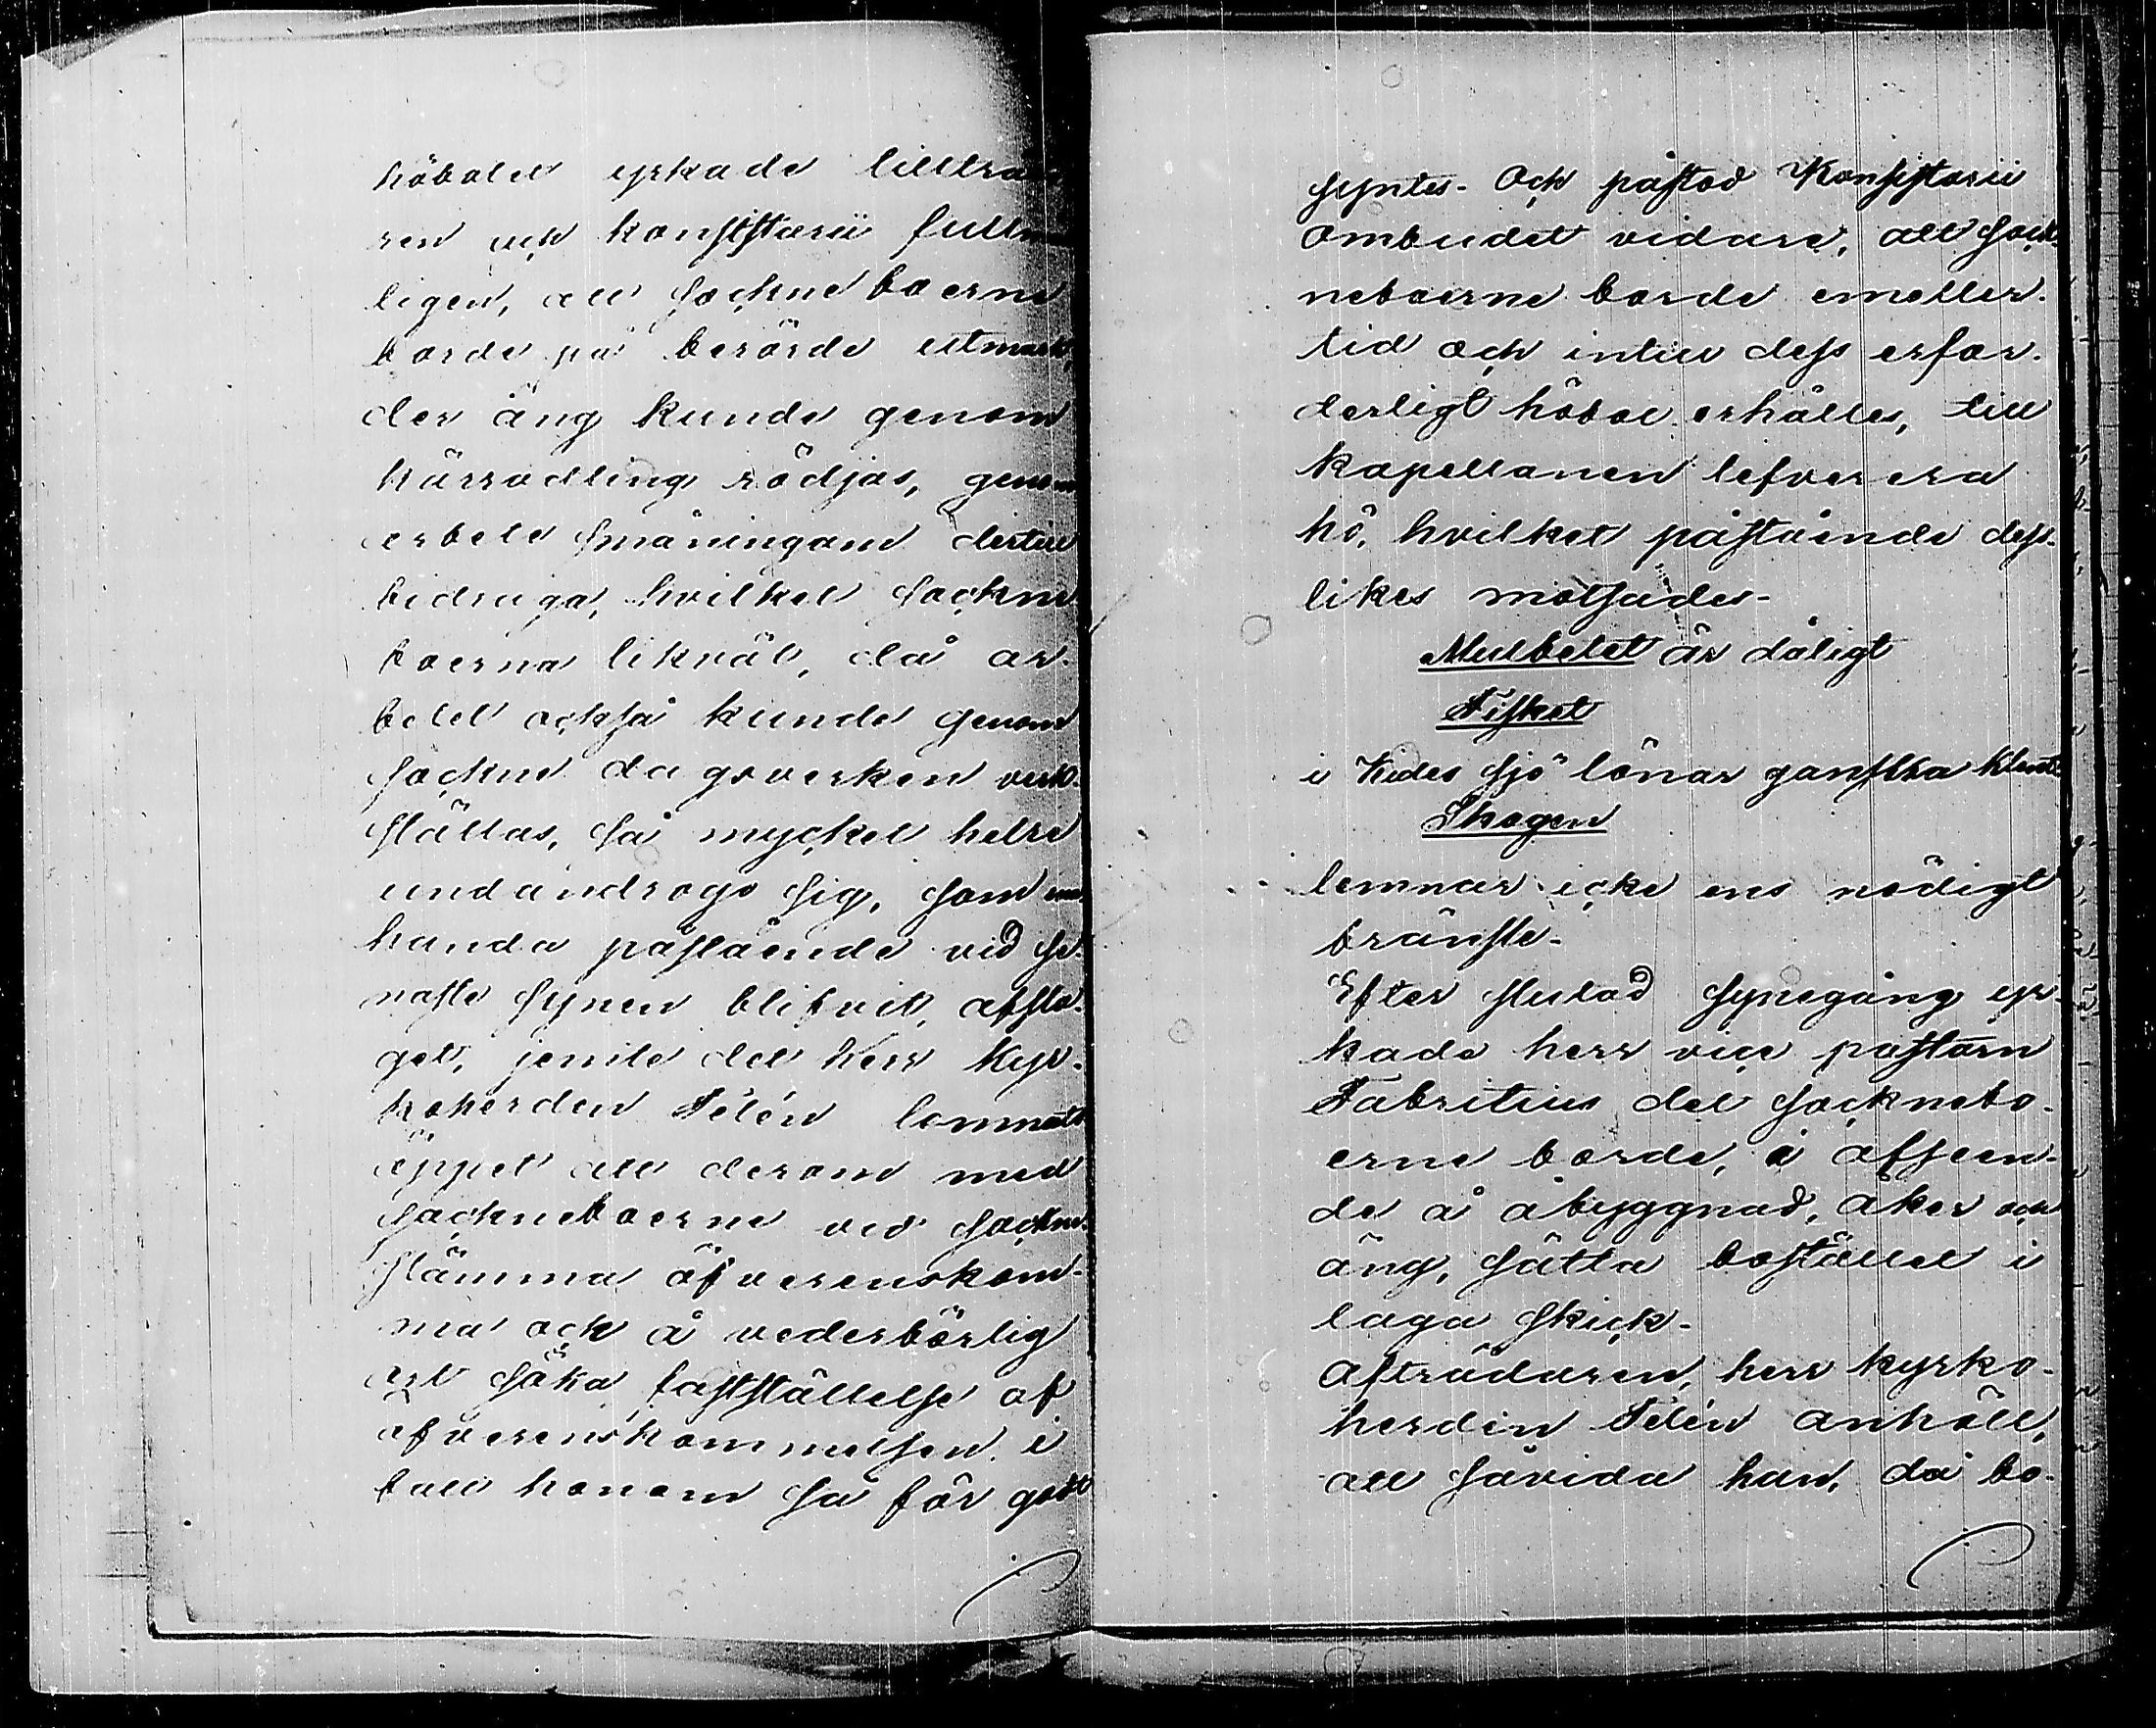 höbolet yrkade tilltra
ren och konsistorii fullm
ligen, att sockneboerne
borde på berörde utmark,
der äng kunde genom
kärrodling rödjas, genom
arbete småningom dertill
bidraga, hvilket sockne
boerna likväl, då ar-
betet också kunde genom
sockne dagsverken verk-
ställas, så mycket helre
undandrogo sig, som em
handa påstående vid se-
naste synen blifvit afsla-
get, jemte det Herr Kyr-
koherden Télén lemnats
öppet att derom med
sockneboerne vid sockne
stämma öfverenskom-
ma och å vederbörlig
ort söka fastställelse af
öfverenskommelsen, i
fall honom så för godt
syntes. Och påstod Konsistorii
ombudet vidare, att sock-
neboerne borde emeller-
tid och intill dess erfor-
derligt höbol erhålles, till
kapellanen lefverera
hö, hvilket påstående dess-
likes motsades.
Mulbetet är dåligt
Fisket
i Kides sjö lönar ganska klent
Skogen
lemnar icke ens nödigt
bränsle.
Efter slutad synegång yr-
kade herr vice pastorn
Fabritius det socknebo-
erne borde, i afseen-
de å åbyggnad, åker och
äng, sätta bostället i
laga skick.
Afträdaren, herr kyrko-
herden Télén anhöll,
att såvida han, då bo-